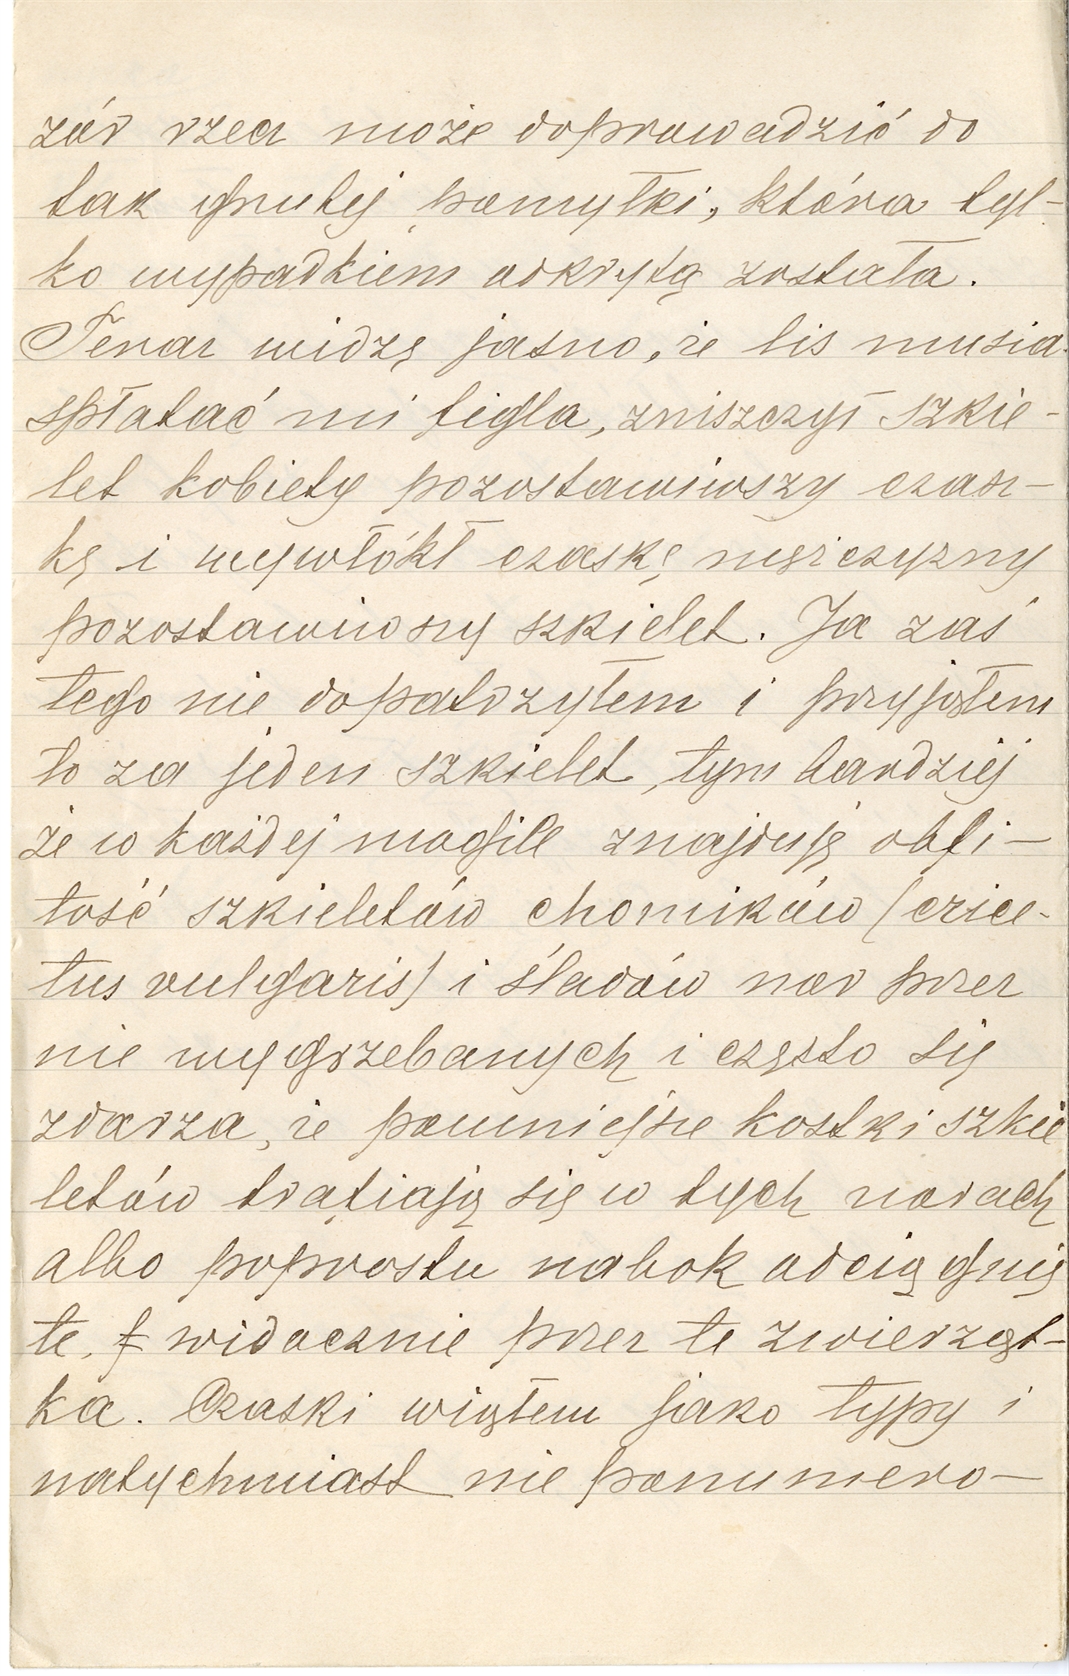 zór rzecz może doprowadzić do
tak grutej pomyłki, która tyl-
ko wypadkiem odkrytą została.
Teraz widzę jasno, że lis musiał
spłatać mi figla, zniszczył szkie-
let kobiety pozostawiwszy czasz-
kę i wywłókł czaskę męzczyzny
pozostawiwszy szkielet. Ja zaś
tego nie dopatrzyłem i przyjąłem
to za jeden szkielet, tym bardziej
że w każdej mogile znajduję obfi-
tość szkieletów chomików (crice-
tus vulgaris) i śladów nor przez
nie wygrzebanych i często się
zdarza, że pomniejsze kostki szkie
letów trafiają się w tych norach
albo poprostu nabok odciągnię
te, widocznie przez te zwierząt-
ka. Czaski wiąłem jako typy i
natychmiast nie ponumero-